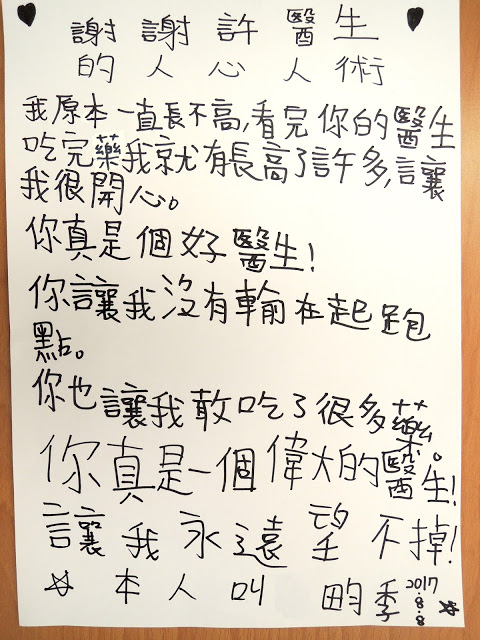 謝謝許醫生
的人心人術
我原本一直長不高,看完你的醫生
吃完藥我就有長高了許多,讓
我很開心。
你真是個好醫生!
你讓我沒有輸在起跑
點。
你也讓我敢吃了很多藥。
你真是一個偉大的醫生!
讓我永遠望不掉!
本人叫 畇季 2017.8.8